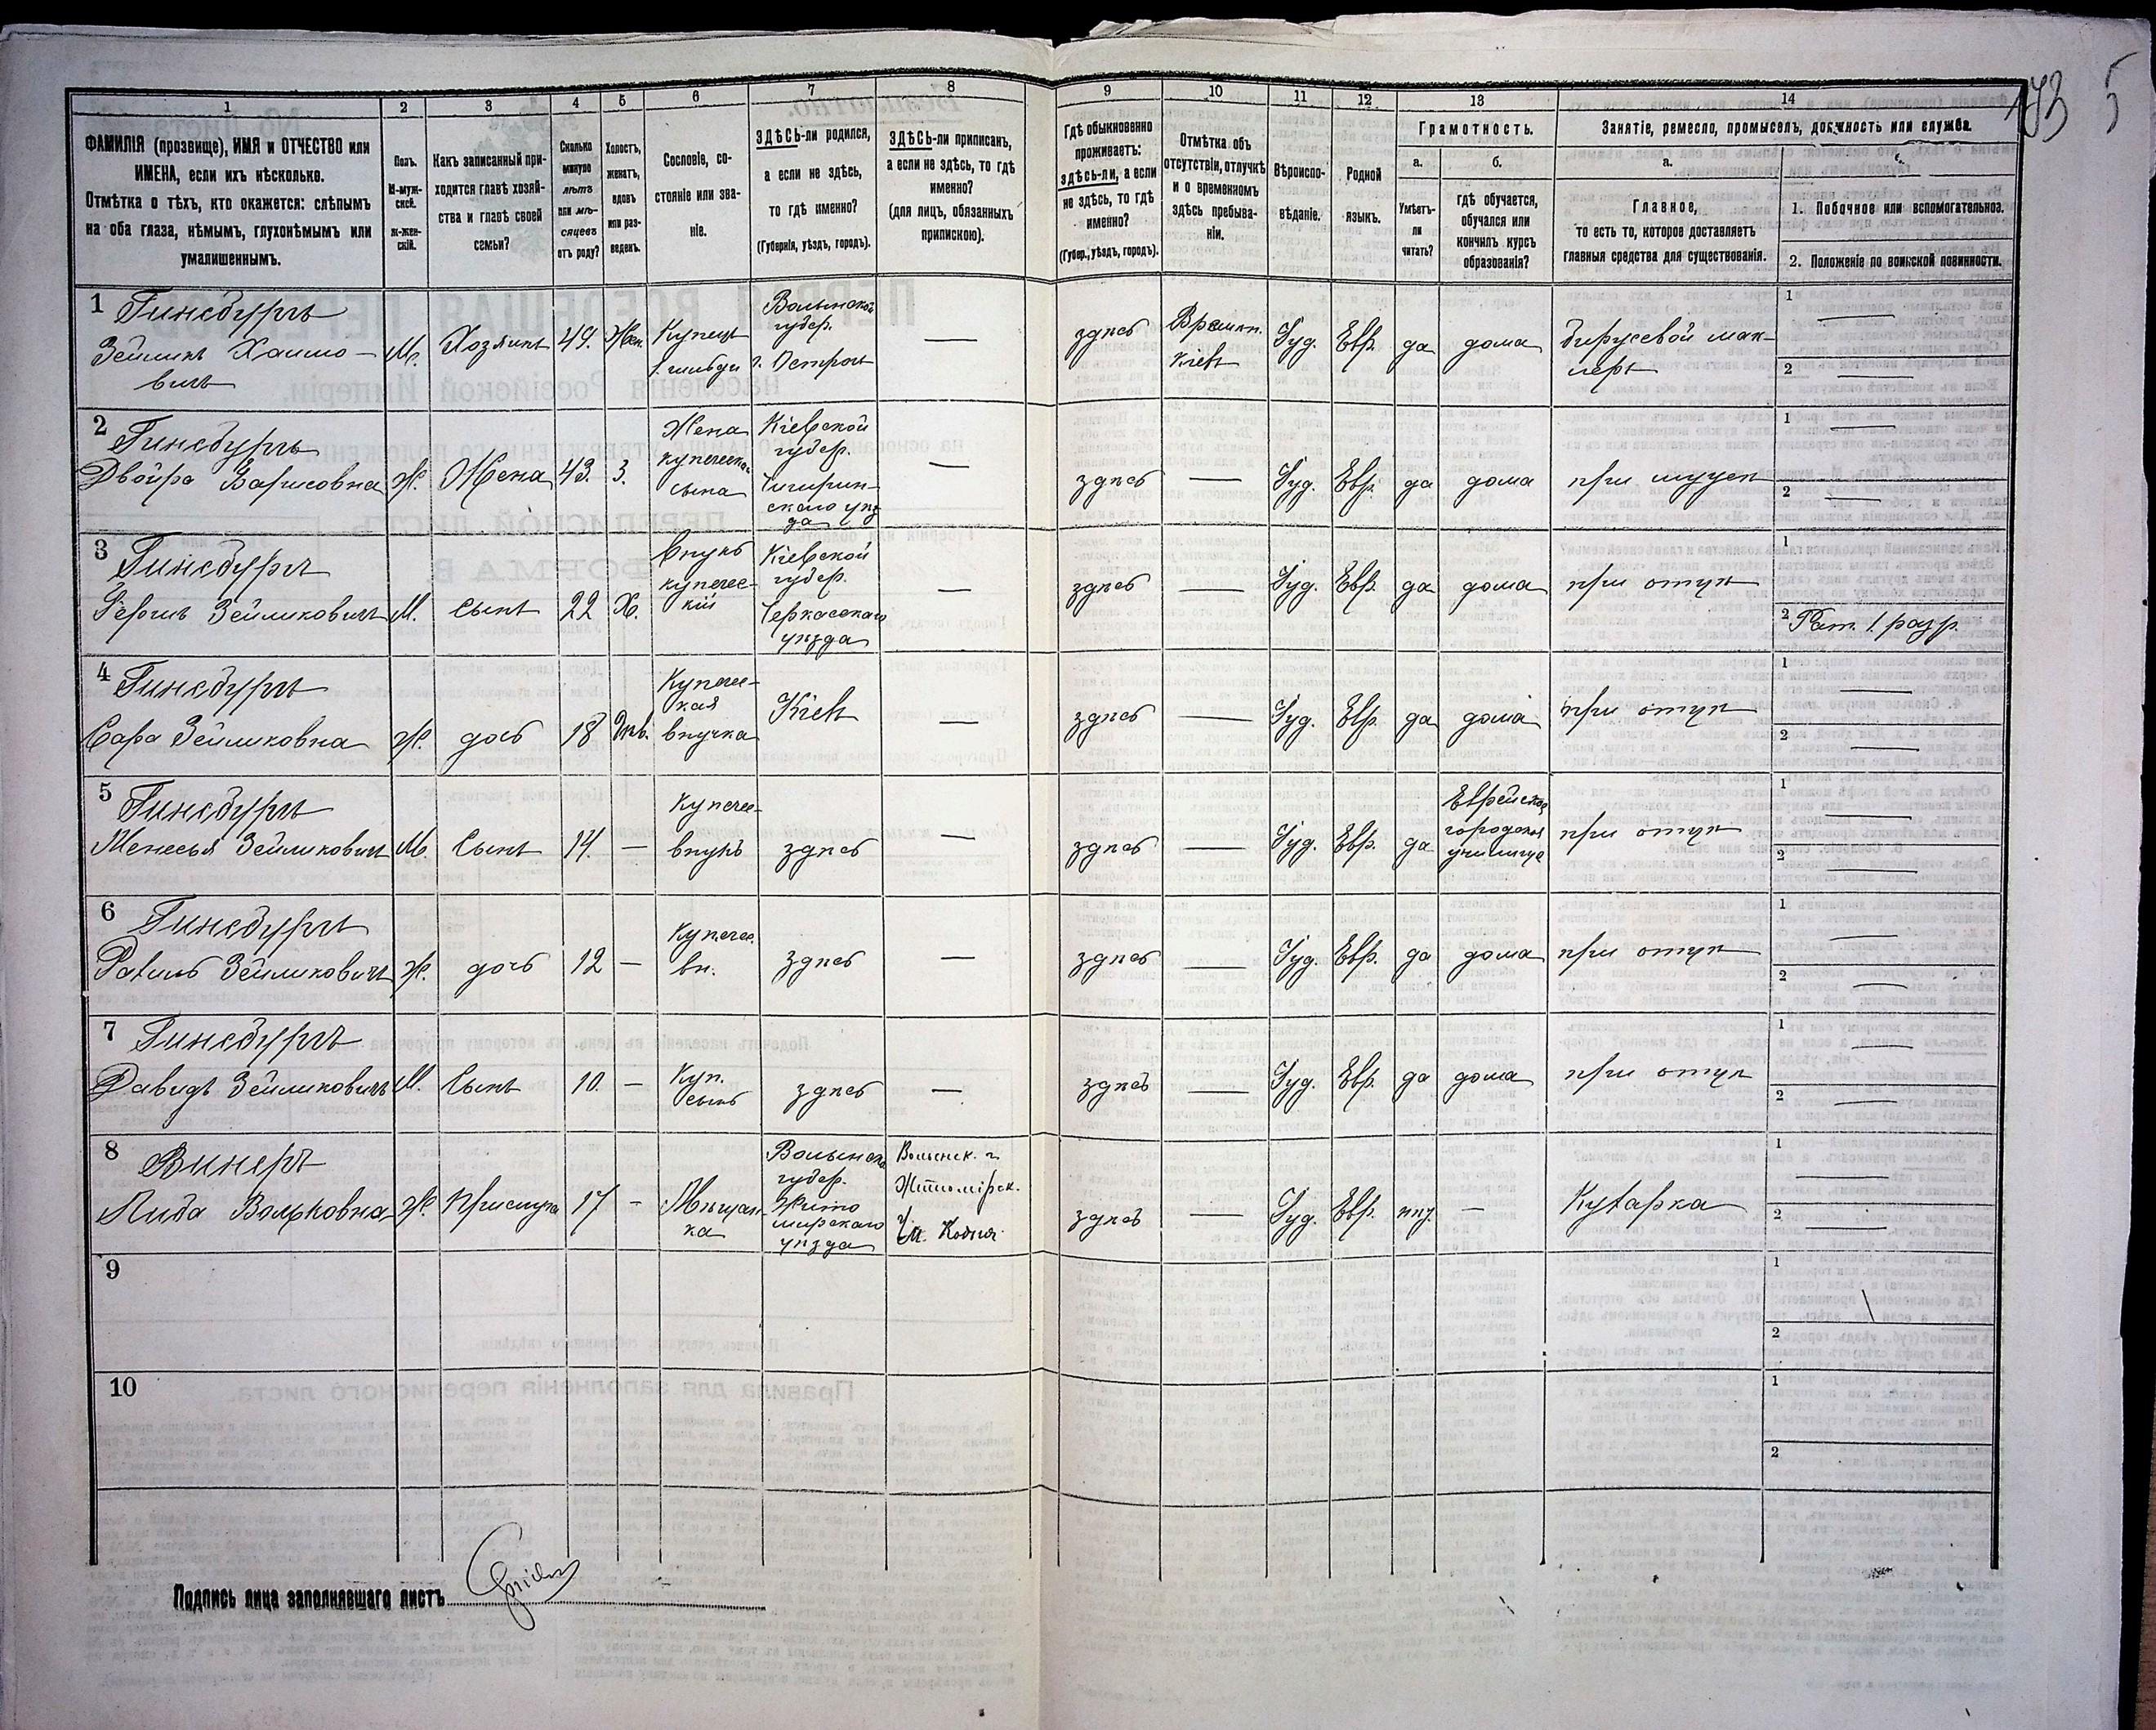 193 5
1 2 3 4 5 6 7 8 9 10 11 12 13 14
ФАМИЛІЯ (прозвище), ИМЯ и ОТЧЕСТВО или
ИМЕНА, если ихъ нѣсколько.
Отмѣтка о тѣхъ, кто окажется: слѣпымъ
на оба глаза, нѣмымъ, глухонѣмымъ или
умалишеннымъ.
Полъ.
М-муж-
ской.
Ж-жен-
скій.
Какъ записанный при-
ходится главѣ хозяй-
ства и главѣ своей
семьи?
Сколько
минуло
лѣтъ
или мѣ-
сяцевъ
отъ роду?
Холостъ,
женатъ,
вдовъ
или раз-
веденъ.
Сословіе, со-
стояніе или зва-
ніе.
ЗДѢСЬ-ли родился,
а если не здѣсь,
то гдѣ именно?
(Губернія, уѣздъ, городъ).
ЗДѢСЬ-ли приписанъ,
а если не здѣсь, то гдѣ
именно?
(для лицъ, обязанныхъ
припискою).
Гдѣ обыкновенно
проживаетъ:
здѣсь-ли, а если
не здѣсь, то гдѣ
именно?
(Губер., уѣздъ, городъ).
Отмѣтка объ
отсутствіи, отлучкѣ
и о временномъ
здѣсь пребыва-
ніи.
Вѣроиспо-
вѣданіе.
Родной
языкъ.
Грамотность.
а.
Умѣетъ-
ли
читать?
б.
гдѣ обучается,
обучался или
кончилъ курсъ
образованія?
Занятіе, ремесло, промыселъ, должность или служба.
а.
Главное,
то есть то, которое доставляетъ
главныя средства для существованія.
1. Побочное или вспомогательное.
2. Положеніе по воинской повинности.
1 Гинсбургъ
Зейликъ Хаимо-
вичъ
М.
Хозяинъ
49.
Жен.
Купецъ
1. гильдіи
Волынской
губер.
г. Острогъ
—
здѣсь
Времен.
Кіевъ
Іуд.
Евр.
да
дома
биржевой мак-
леръ
1 —
2 —
2 Гинсбургъ
Двойра Борисовна
Ж.
Жена
43.
З.
Жена
купеческа
сына
Кіевской
губер.
Чигирин-
скаго уѣз
да
—
здѣсь
—
Іуд.
Евр.
да
дома
при мужѣ
1 —
2 —
3 Гинсбургъ
Гершъ Зейликовичъ
М.
Сынъ
22
Х.
Внукъ
купечес-
кій
Кіевской
губер.
Черкасскаго
уѣзда
—
здѣсь
—
Іуд.
Евр.
да
дома
при отцѣ
1
2 Рат. 1 разр.
4 Гинсбургъ
Сара Зейликовна
Ж.
дочь
18
Дѣв.
Купечес-
кая
внучка
Кіевъ
—
здѣсь
—
Іуд.
Евр.
да
дома
при отцѣ
1 —
2 —
5 Гинсбургъ
Зейликовичъ
М.
Сынъ
14.
—
Купечес-
внукъ
здѣсь
—
здѣсь
—
Іуд.
Евр.
да
Еврейское
городское
училище
при отцѣ
1 —
2 —
6 Гинсбургъ
Рахиль Зейликовичъ
Ж.
дочь
12
—
Купечес.
вн.
здѣсь
—
здѣсь
—
Іуд.
Евр.
да
дома
при отцѣ
1 —
2 —
7 Гинсбургъ
Давидъ Зейликовичъ
М.
Сынъ
10.
—
Куп.
сынъ
здѣсь
—
здѣсь
—
Іуд.
Евр.
да
дома
при отцѣ
1 —
2 —
8 Винеръ
Вольковна
Ж.
Прислуга
17
—
Мѣщан-
ка
Волынско
губер.
Жито
мирскаго
уѣзда
Волынск. г.
Житомірск.
м. Кодня
здѣсь
—
Іуд.
Евр.
нѣт.
—
Кухарка
1 —
2 —
9
1
2
10
1
2
Подпись лица заполнявшаго листъ